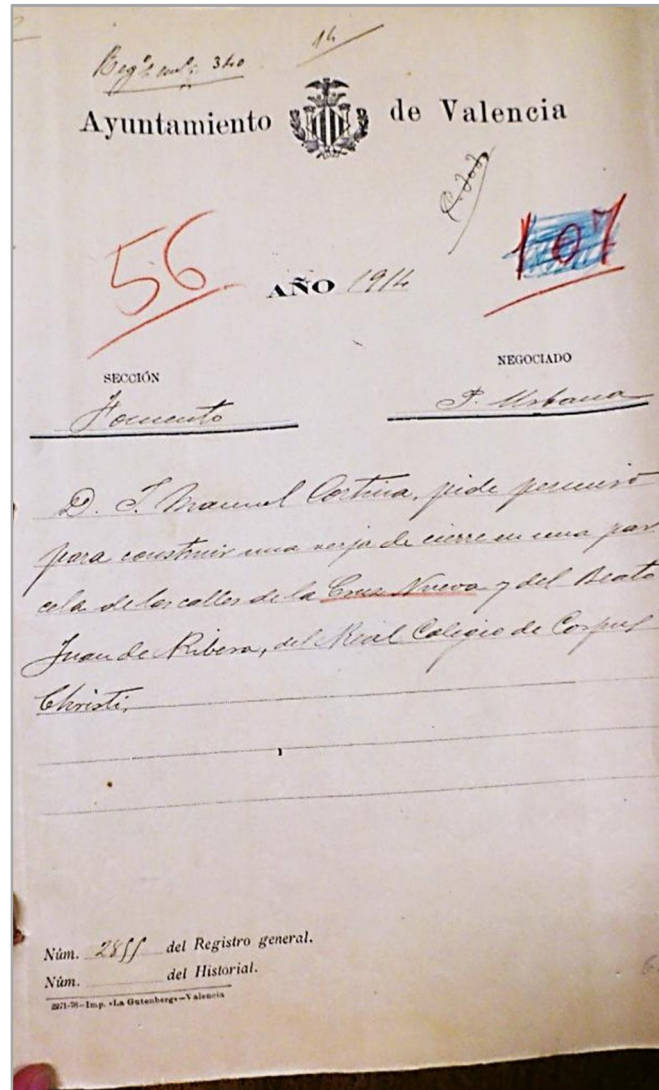 14
Regº 340
Ayuntamiento de Valencia
56
107
AÑO 1914
SECCIÓN
NEGOCIADO
Fomento
P. Urbana
D. J. Manuel Cortina, pide permiso
para construir una verja de cierre en una par
cela de las calles de la Cruz Nueva y del Beato
Juan de Ribera, del Real Colegio de Corpus
Christi.
Núm. 2855 del Registro general.
Núm. del Historial.
2971-78-Imp. «La Gutenberg»-Valencia